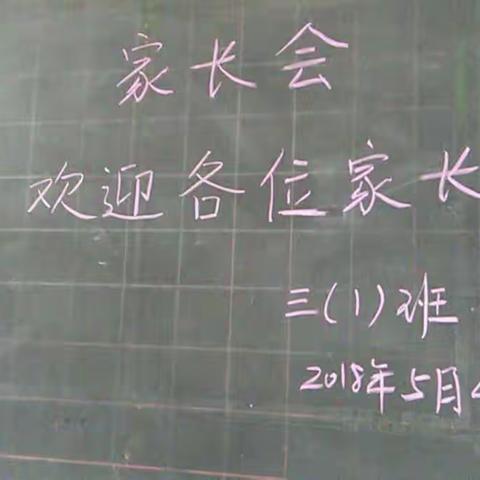 家长会
欢迎各位家长
三(1)班
2018年5月